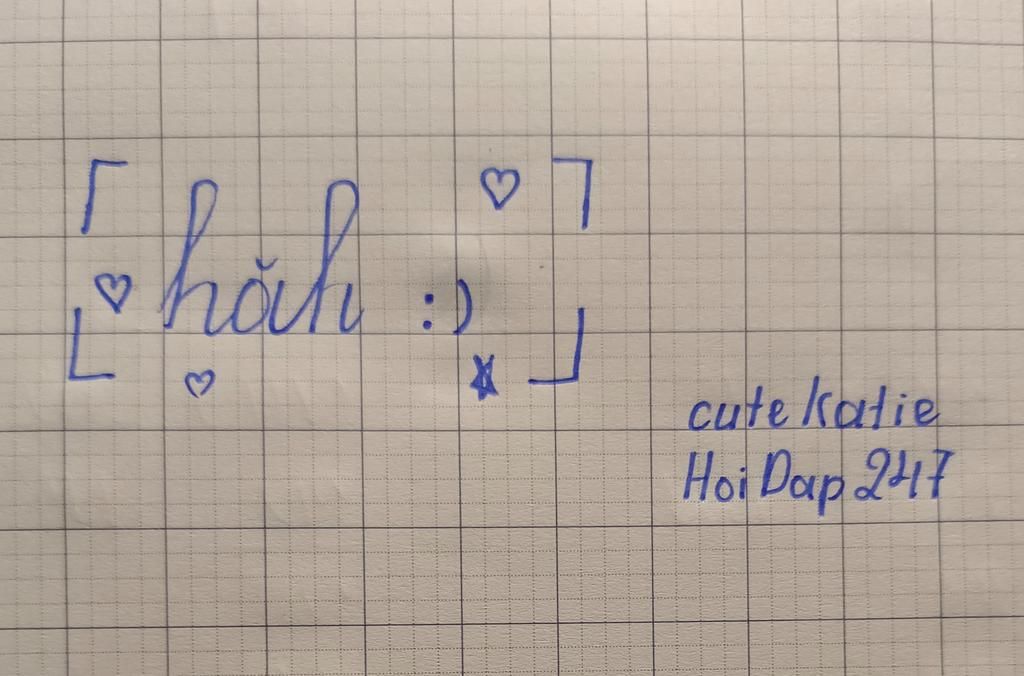 hăh :)
cutekatie
HoiDap247